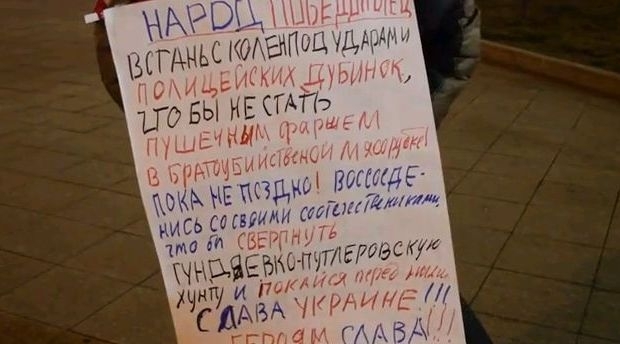 НАРОД ПОБЕДИТЕЛЕЙ
ВСТАНЬ С КОЛЕН ПОД УДАРАМИ
ПОЛИЦЕЙСКИХ ДУБИНОК,
ЧТО БЫ НЕ СТАТЬ
ПУШЕЧНЫМ ФАРШЕМ
В БРАТОУБИЙСТВЕНОЙ МЯСОРУБКЕ!
ПОКА НЕ ПОЗДНО! ВОССОЕДЕ-
НИСЬ СО СВОИМИ СООТЕЧЕСТВЕНИКАМИ,
ЧТО БЫ СВЕРГНУТЬ
ГУНДЯЕВКО-ПУТЛЕРОВСКУЮ
ХУНТУ И ПОКАЙСЯ ПЕРЕД НИМИ.
СЛАВА УКРАИНЕ!!!
ГЕРОЯМ СЛАВА!!!